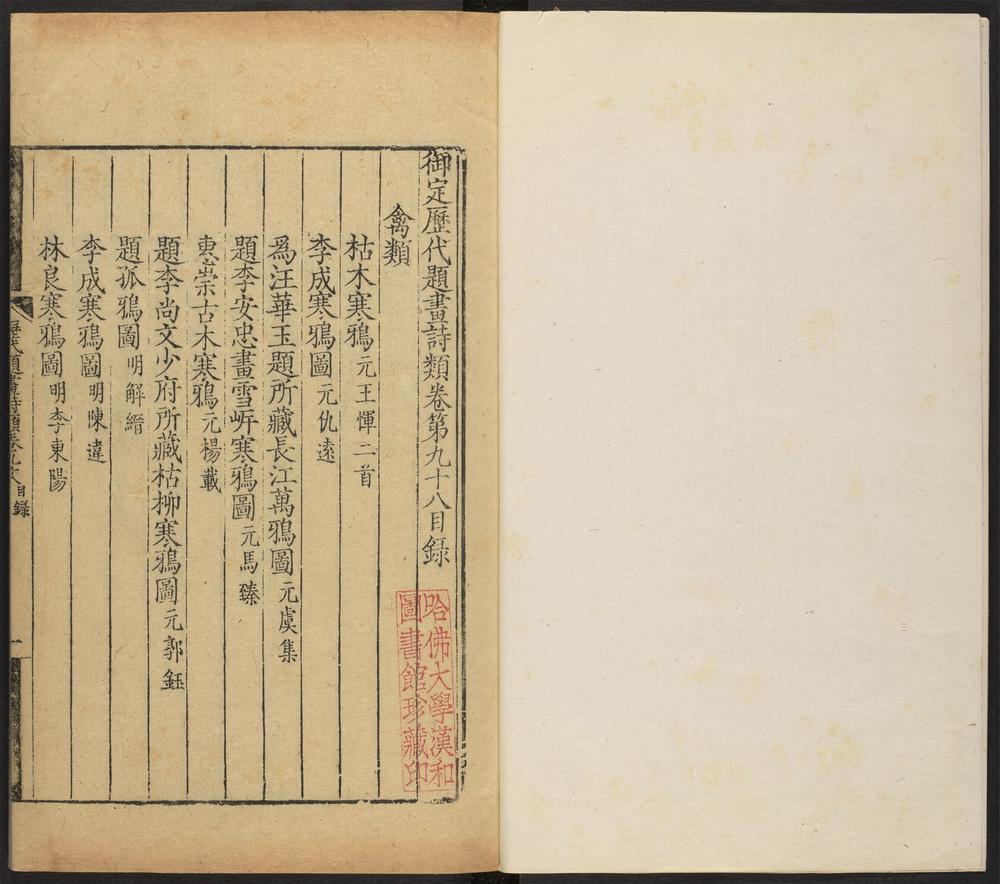 御定歷代題畫詩類卷第九十八目錄
禽類
枯木寒鴉 元王惲二首
李成寒鴉圖 元仇遠
爲汪華玉題所藏長江萬鴉圖 元虞集
題李安忠畫雪岍寒鴉圖 元馬臻
惠崇古木寒鴉 元楊載
題李尚文少府所藏枯柳寒鴉圖 元郭鈺
題孤鴉圖 明解縉
李成寒鴉圖 明陳違
林良寒鴉圖 明李東陽
歷代題畫詩類卷九十八 目錄
一
哈佛大學漢和
圖書館珍藏印